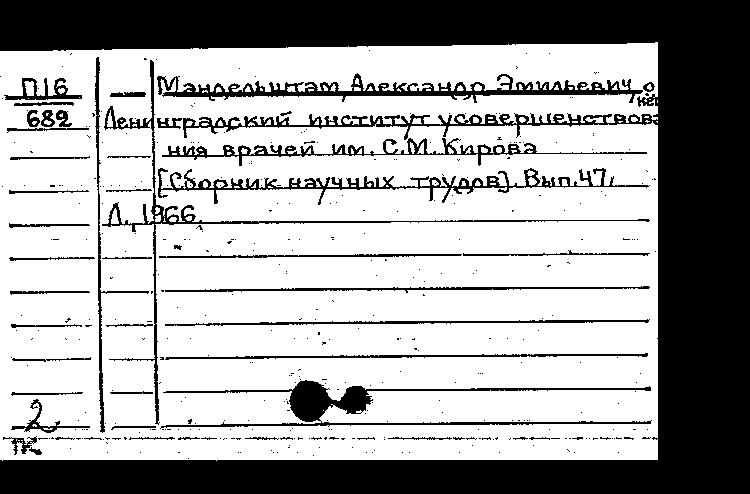 П16
682
Мандельштам, Александр Эмильевич, о
нём
Ленинградский институт усовершенствова
ния врачей им. С.М. Кирова
[Сборник научных трудов]. Вып. 47.
Л., 1966.
2
ПК